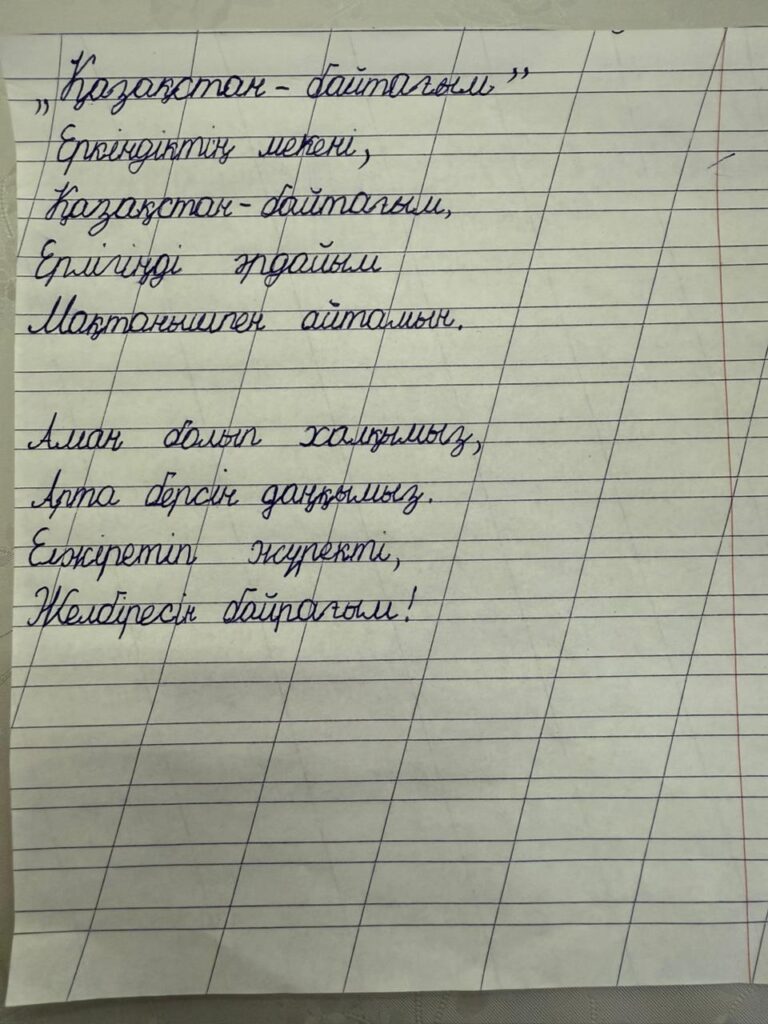 „Қазақстан - байтағым”
Еркіндіктің мекені,
Қазақстан - байтағым,
Ерлігіңді әрдайым
Мақтанышпен айтамын.
Аман болып халқымыз,
Арта берсін даңқымыз.
Елжіретіп жүректі,
Желбіресін байрағым!